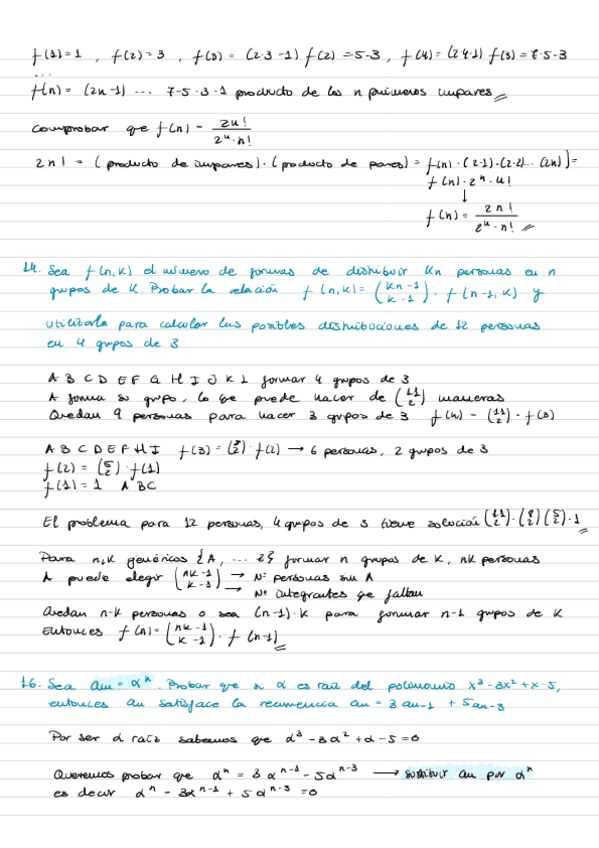 f(1)=1 , f(2)=3 , f(3)= (2·3-1) f(2) =5·3 , f(4)= (2·4-1) f(3)=7·5·3
...
f(n)= (2n-1) ... 7·5·3·1 producto de los n primeros impares
Comprobar que f(n) = 2n! / 2^n·n!
2n! = (producto de impares)·(producto de pares) = f(n)·(2·1)·(2·2)...(2n)=
f(n)·2^n·n!
↓
f(n)= 2n! / 2^n·n!
14. Sea f(n,k) el número de formas de distribuir kn personas en n
grupos de k. Probar la relación f(n,k)= (kn-1 / k-1)· f(n-1,k) y
utilizarla para calcular las posibles distribuciones de 12 personas
en 4 grupos de 3
A B C D E F G H I J K L formar 4 grupos de 3
A forma su grupo, lo que puede hacer de (11 / 2) maneras
Quedan 9 personas para hacer 3 grupos de 3 f(4) = (11 / 2)· f(3)
A B C D E F H I f(3) = (8 / 2)· f(2) → 6 personas, 2 grupos de 3
f(2) = (5 / 2)· f(1)
f(1) = 1 A BC
El problema para 12 personas, 4 grupos de 3 tiene solución (11 / 2)·(8 / 2)(5 / 2)·1
Para n,k genéricos {A, ... z} formar n grupos de k, nk personas
A puede elegir (nk-1 / k-1) → Nº personas sin A
→ Nº integrantes que faltan
Quedan n-k personas o sea (n-1)·k para formar n-1 grupos de k
Entonces f(n)= (nk-1 / k-1)· f(n-1)
16. Sea an = α^n. Probar que si α es raíz del polinomio x³-3x²+x-5,
entonces an satisface la recurrencia an = 3an-1 + 5an-3
Por ser α raíz sabemos que α³-3α²+α-5=0
Queremos probar que α^n = 3α^n-1 - 5α^n-3 → sustituir an por α^n
es decir α^n - 3α^n-1 + 5α^n-3 =0